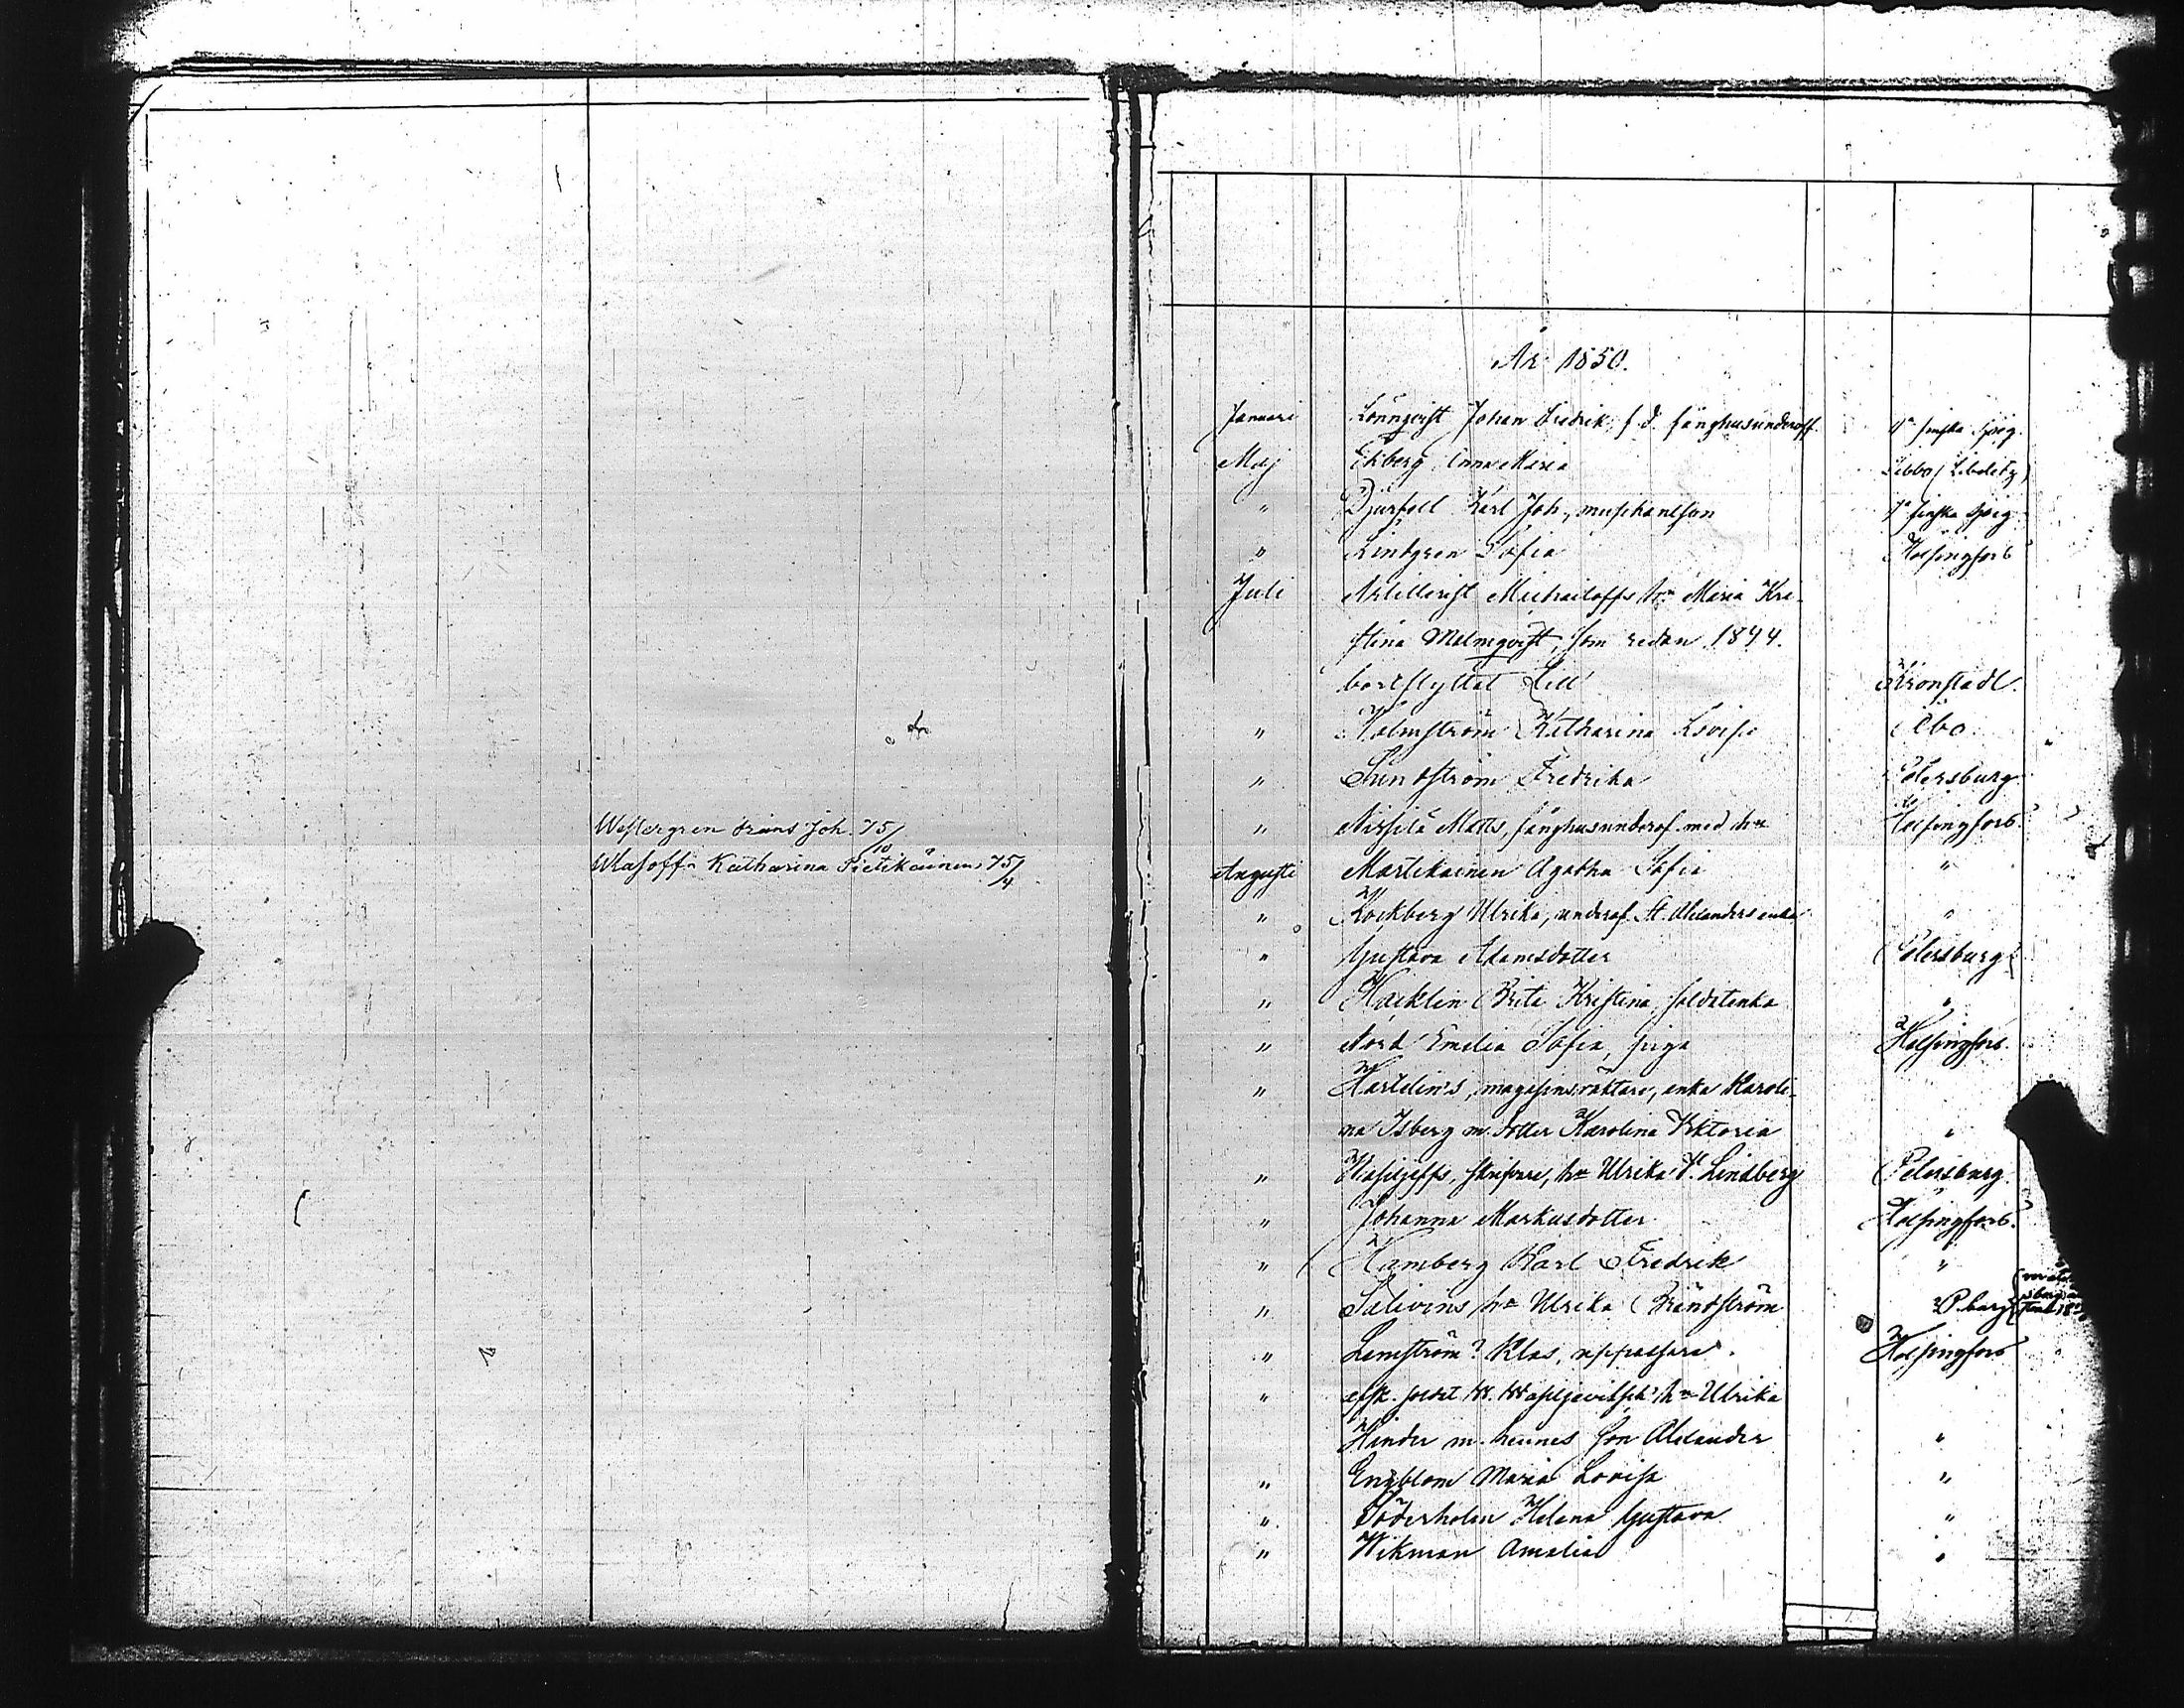 Westergren Frans Joh. 75/10
Wlasoff Katharina Pietikäinen 75/4
År 1850.
Januari Lönnqvist Johan Fredrik, f. d. fånghusunderoff. finska
Maj Ekberg Anna Maria Sibbo (Libelitz)
" Djurfell Karl Joh., finska
" Lindgren Sofia Helsingfors
Juli Artillerist Michailoffs h:u Maria Kri-
stina Malmqvist, som redan 1844.
bortflyttat till Kronstadt.
" Holmström Katharina Lovisa Åbo
" Sundström Fredrika Petersburg
" Nissilä Matts, fånghusunderof. med h:u Helsingfors.
Augusti Martikainen Agatha Sofia "
" Rockberg Ulrika, underof. St. Alexanders enka "
" Gustava Adamsdotter Petersburg
" Häcklin Brita Kristina, soldatenka "
" Nord Emelia Sofia, piga Helsingfors.
" Hartelin's, magasinsvaktare, enka Karoli-
na Isberg m. dotter Karolina Viktoria "
" Wasiljeffs, skrifvare, h:u Ulrika V. Lindberg Petersburg.
" Johanna Markusdotter Helsingfors.
" Hamberg Karl Fredrik "
" Salivins h:u Ulrika Brandström P.burg
" Lemström? Klas, uppassare. Helsingfors
" afsk. soldat W. Wasiljevitsch' h:u Ulrika
Hinder m. hennes son Alexander "
" Engblom Maria Lovisa "
" Söderholm Helena Gustava "
" Wikman Amalia "